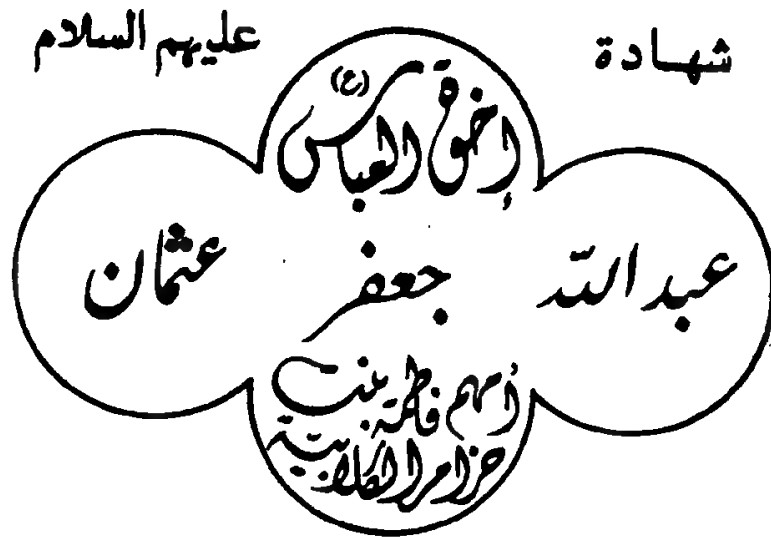 شهادة
عليهم السلام
إخوة العباس (ع)
عبد الله جعفر عثمان
أمهم فاطمة بنت
حزام الكلابية